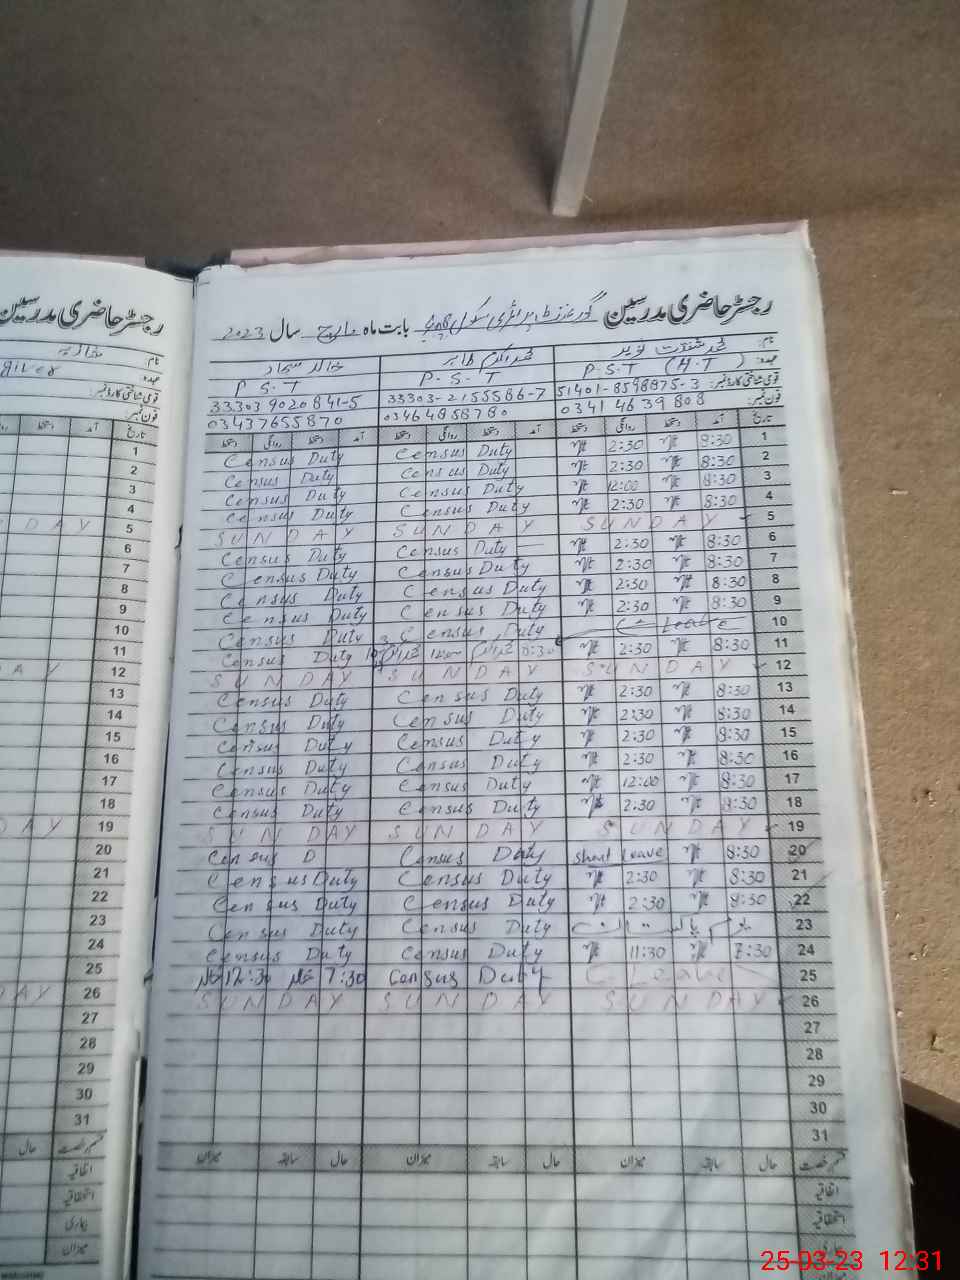 رجسٹر حاضری مدرسین گورنمنٹ پرائمری سکول بابت ماہ مارچ سال 2023
نام: محمد شفقت نوید محمد اکرم طاہر خالد سجاد
عہدہ: P.S.T (H.T) P.S.T P.S.T
قومی شناختی کارڈ نمبر: 51401-8598875-3 33303-2155586-7 33303 9020841-5
فون نمبر: 0341 4639808 03464858780 03437655870
تاریخ آمد دستخط روانگی دستخط آمد دستخط روانگی دستخط آمد دستخط روانگی دستخط
1 8:30 2:30 Census Duty Census Duty
2 8:30 2:30 Census Duty Census Duty
3 8:30 12:00 Census Duty Census Duty
4 8:30 2:30 Census Duty Census Duty
5 SUNDAY SUNDAY SUNDAY
6 8:30 2:30 Census Duty Census Duty
7 8:30 2:30 Census Duty Census Duty
8 8:30 2:30 Census Duty Census Duty
9 8:30 2:30 Census Duty Census Duty
10 C-Leave Census Duty Census Duty
11 8:30 2:30 8:30 Census Duty
12 SUNDAY SUNDAY SUNDAY
13 8:30 2:30 Census Duty Census Duty
14 8:30 2:30 Census Duty Census Duty
15 8:30 2:30 Census Duty Census Duty
16 8:30 2:30 Census Duty Census Duty
17 8:30 12:00 Census Duty Census Duty
18 8:30 2:30 Census Duty Census Duty
19 SUNDAY SUNDAY SUNDAY
20 8:30 short leave Census Duty Census D
21 8:30 2:30 Census Duty Census Duty
22 8:30 2:30 Census Duty Census Duty
23 یوم پاکستان Census Duty Census Duty
24 7:30 11:30 Census Duty Census Duty
25 C.Leave Census Duty 7:30 خالد 12:30 خالد
26 SUNDAY SUNDAY SUNDAY
27
28
29
30
31
قسم رخصت حال سابقہ میزان حال سابقہ میزان حال سابقہ میزان
اتفاقیہ
استحقاقیہ
بیماری
رجسٹر حاضری مدرسین
نام:
عہدہ: giver
قومی شناختی کارڈ نمبر:
فون نمبر:
تاریخ آمد دستخط
1
2
3
4
5 DAY
6
7
8
9
10
11
12 AY
13
14
15
16
17
18
19 DAY
20
21
22
23
24
25
26 AY
27
28
29
30
31
قسم رخصت حال
اتفاقیہ
استحقاقیہ
بیماری
میزان
25-03-23 12:31